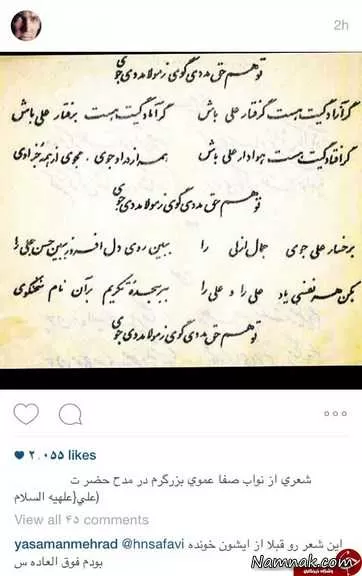 2h
تو هم حق مددی گوی ز مولا مددی جوی
گر آزادگیت هست گرفتار علی باش گر آمادگیت هست برفتار علی باش
گر افتادگیت هست هوادار علی باش همه از داد جوی . مجوی از همه
تو هم حق مددی گوی ز مولا مددی جوی
برخسار علی جوی جمال ازلی را ببین روی دل افروز ببین حسن را
بکن هر نفسی یاد علی را و علی را ببر سجده تکریم بر آن نام سخنگوی
تو هم حق مددی گوی ز مولا مددی جوی
۲٬۰۵۵ likes
شعري از نواب صفا عموي بزرگرم در مدح حضر ت
علي(علهيه السلام)
View all ۴۵ comments
yasamanmehrad @hnsafavi این شعر رو قبلا از ایشون خونده
بودم فوق العاده س
Namnak.com